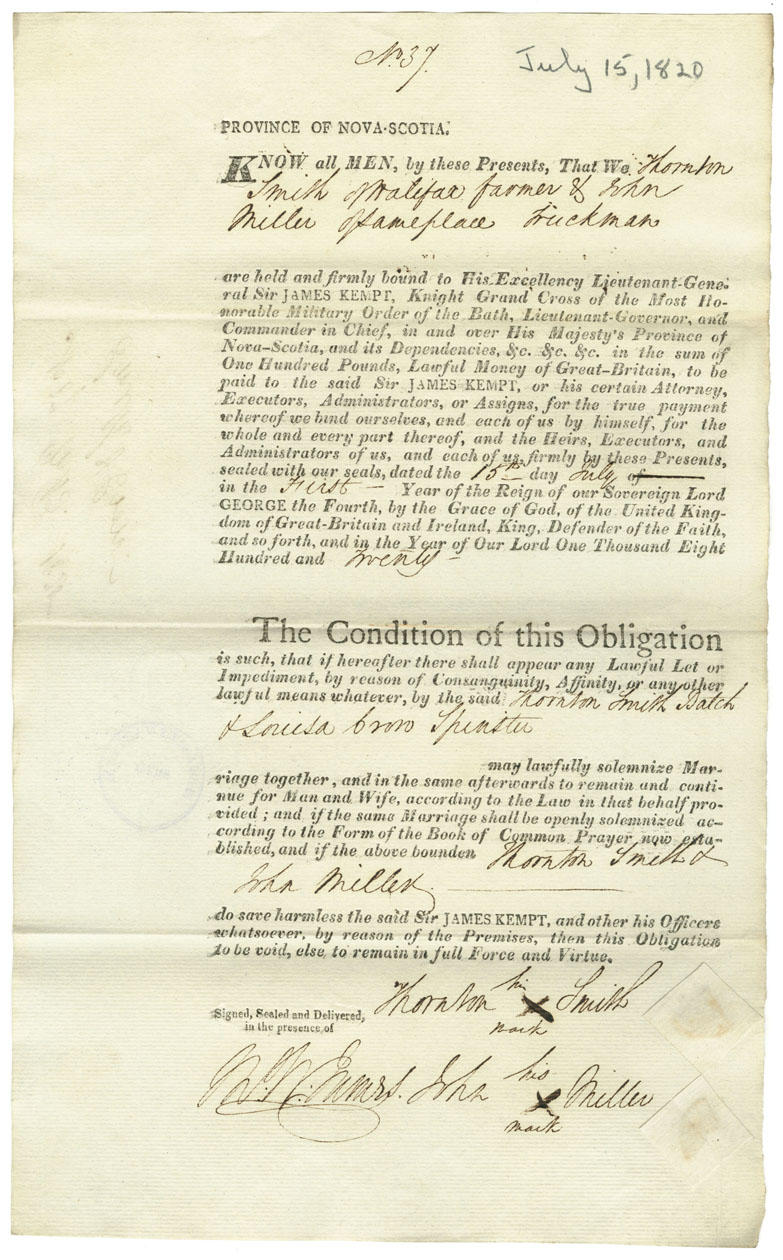 No 37.
July 15, 1820
PROVINCE OF NOVA-SCOTIA.
KNOW all MEN, by these Presents, That We Thornton
Smith of Halifax farmer & John
Miller of same place Truckman
are held and firmly bound to His Excellency Lieutenant-Gene-
ral Sir JAMES KEMPT, Knight Grand Cross of the Most Ho-
norable Military Order of the Bath, Lieutenant-Governor, and
Commander in Chief, in and over His Majesty's Province of
Nova-Scotia, and its Dependencies, &c. &c. &c. in the sum of
One Hundred Pounds, Lawful Money of Great-Britain, to be
paid to the said Sir JAMES KEMPT, or his certain Attorney,
Executors, Administrators, or Assigns, for the true payment
whereof we bind ourselves, and each of us by himself, for the
whole and every part thereof, and the Heirs, Executors, and
Administrators of us, and each of us, firmly by these Presents,
sealed with our seals, dated the 15th day July of
in the First Year of the Reign of our Sovereign Lord
GEORGE the Fourth, by the Grace of God, of the United King-
dom of Great-Britain and Ireland, King, Defender of the Faith,
and so forth, and in the Year of Our Lord One Thousand Eight
Hundred and Twenty
The Condition of this Obligation
is such, that if hereafter there shall appear any Lawful Let or
Impediment, by reason of Consanguinity, Affinity, or any other
lawful means whatever, by the said Thornton Smith Batch
& Louisa Crow Spinster
may lawfully solemnize Mar-
riage together, and in the same afterwards to remain and conti-
nue for Man and Wife, according to the Law in that behalf pro-
vided; and if the same Marriage shall be openly solemnized ac-
cording to the Form of the Book of Common Prayer now esta-
blished, and if the above bounden Thornton Smith &
John Miller
do save harmless the said Sir JAMES KEMPT, and other his Officers
whatsoever, by reason of the Premises, then this Obligation
to be void, else to remain in full Force and Virtue.
Thornton his X mark Smith
Signed, Sealed and Delivered,
in the presence of
John his X mark Miller